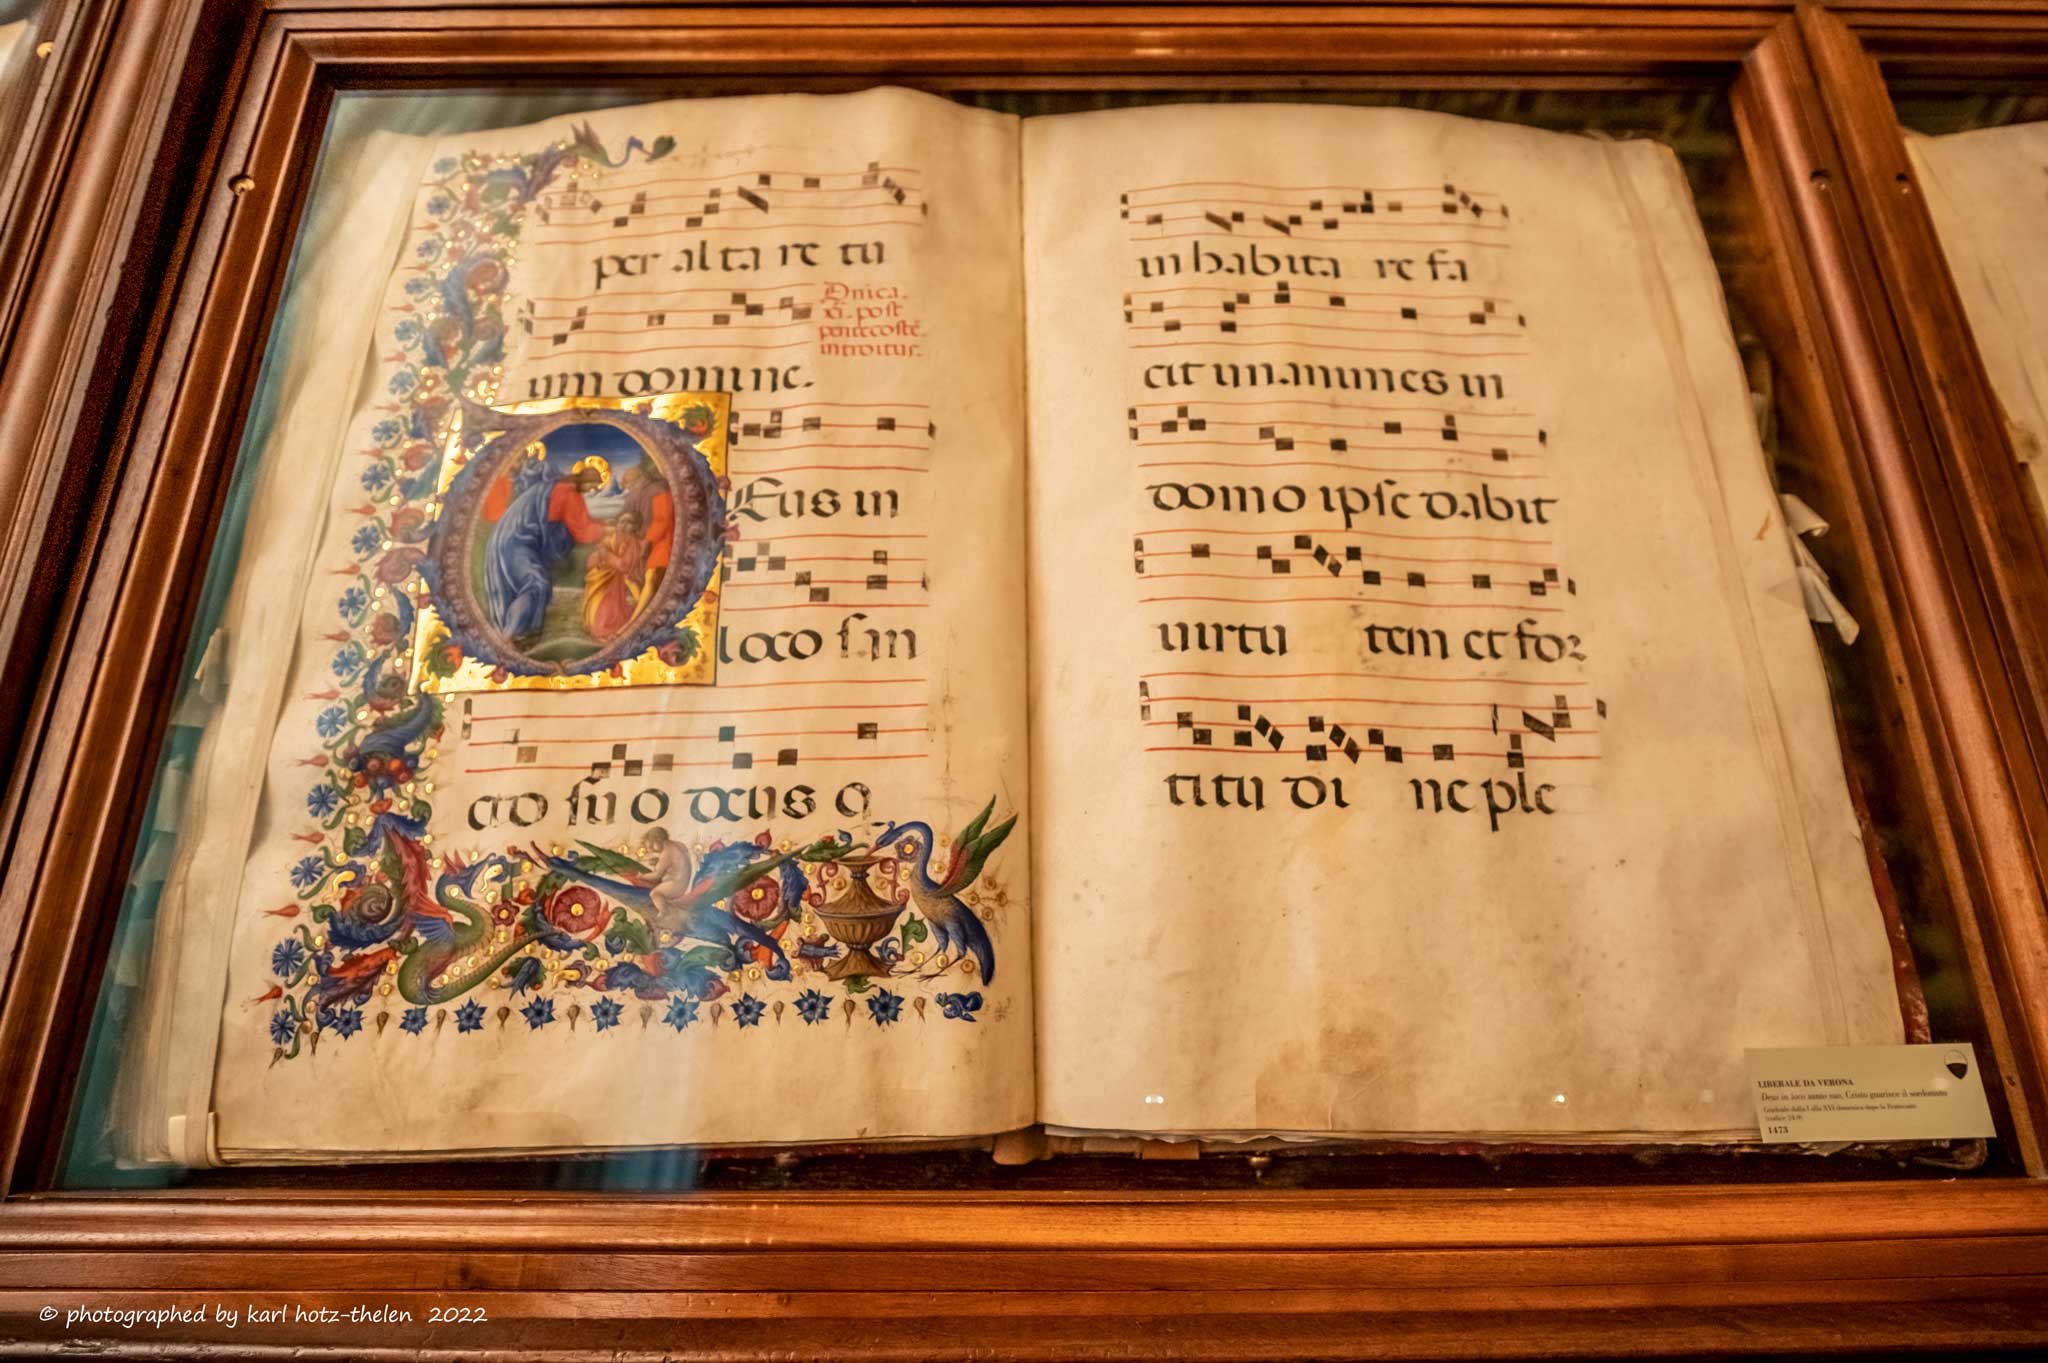 per alta re tu
um domine.
Dnica.
xi. post
pentecostē.
introitus.
Eus in
loco san
cto suo deus q
in habita re fa
cit unanimes in
domo ipse dabit
uirtu tem et for
titu di ne ple
LIBERALE DA VERONA
Deus in loco santo suo, Cristo guarisce il sordomuto
Graduale dalla I alla XVI domenica dopo la Pentecoste
(codice 24.9)
1473
© photographed by karl hotz-thelen 2022